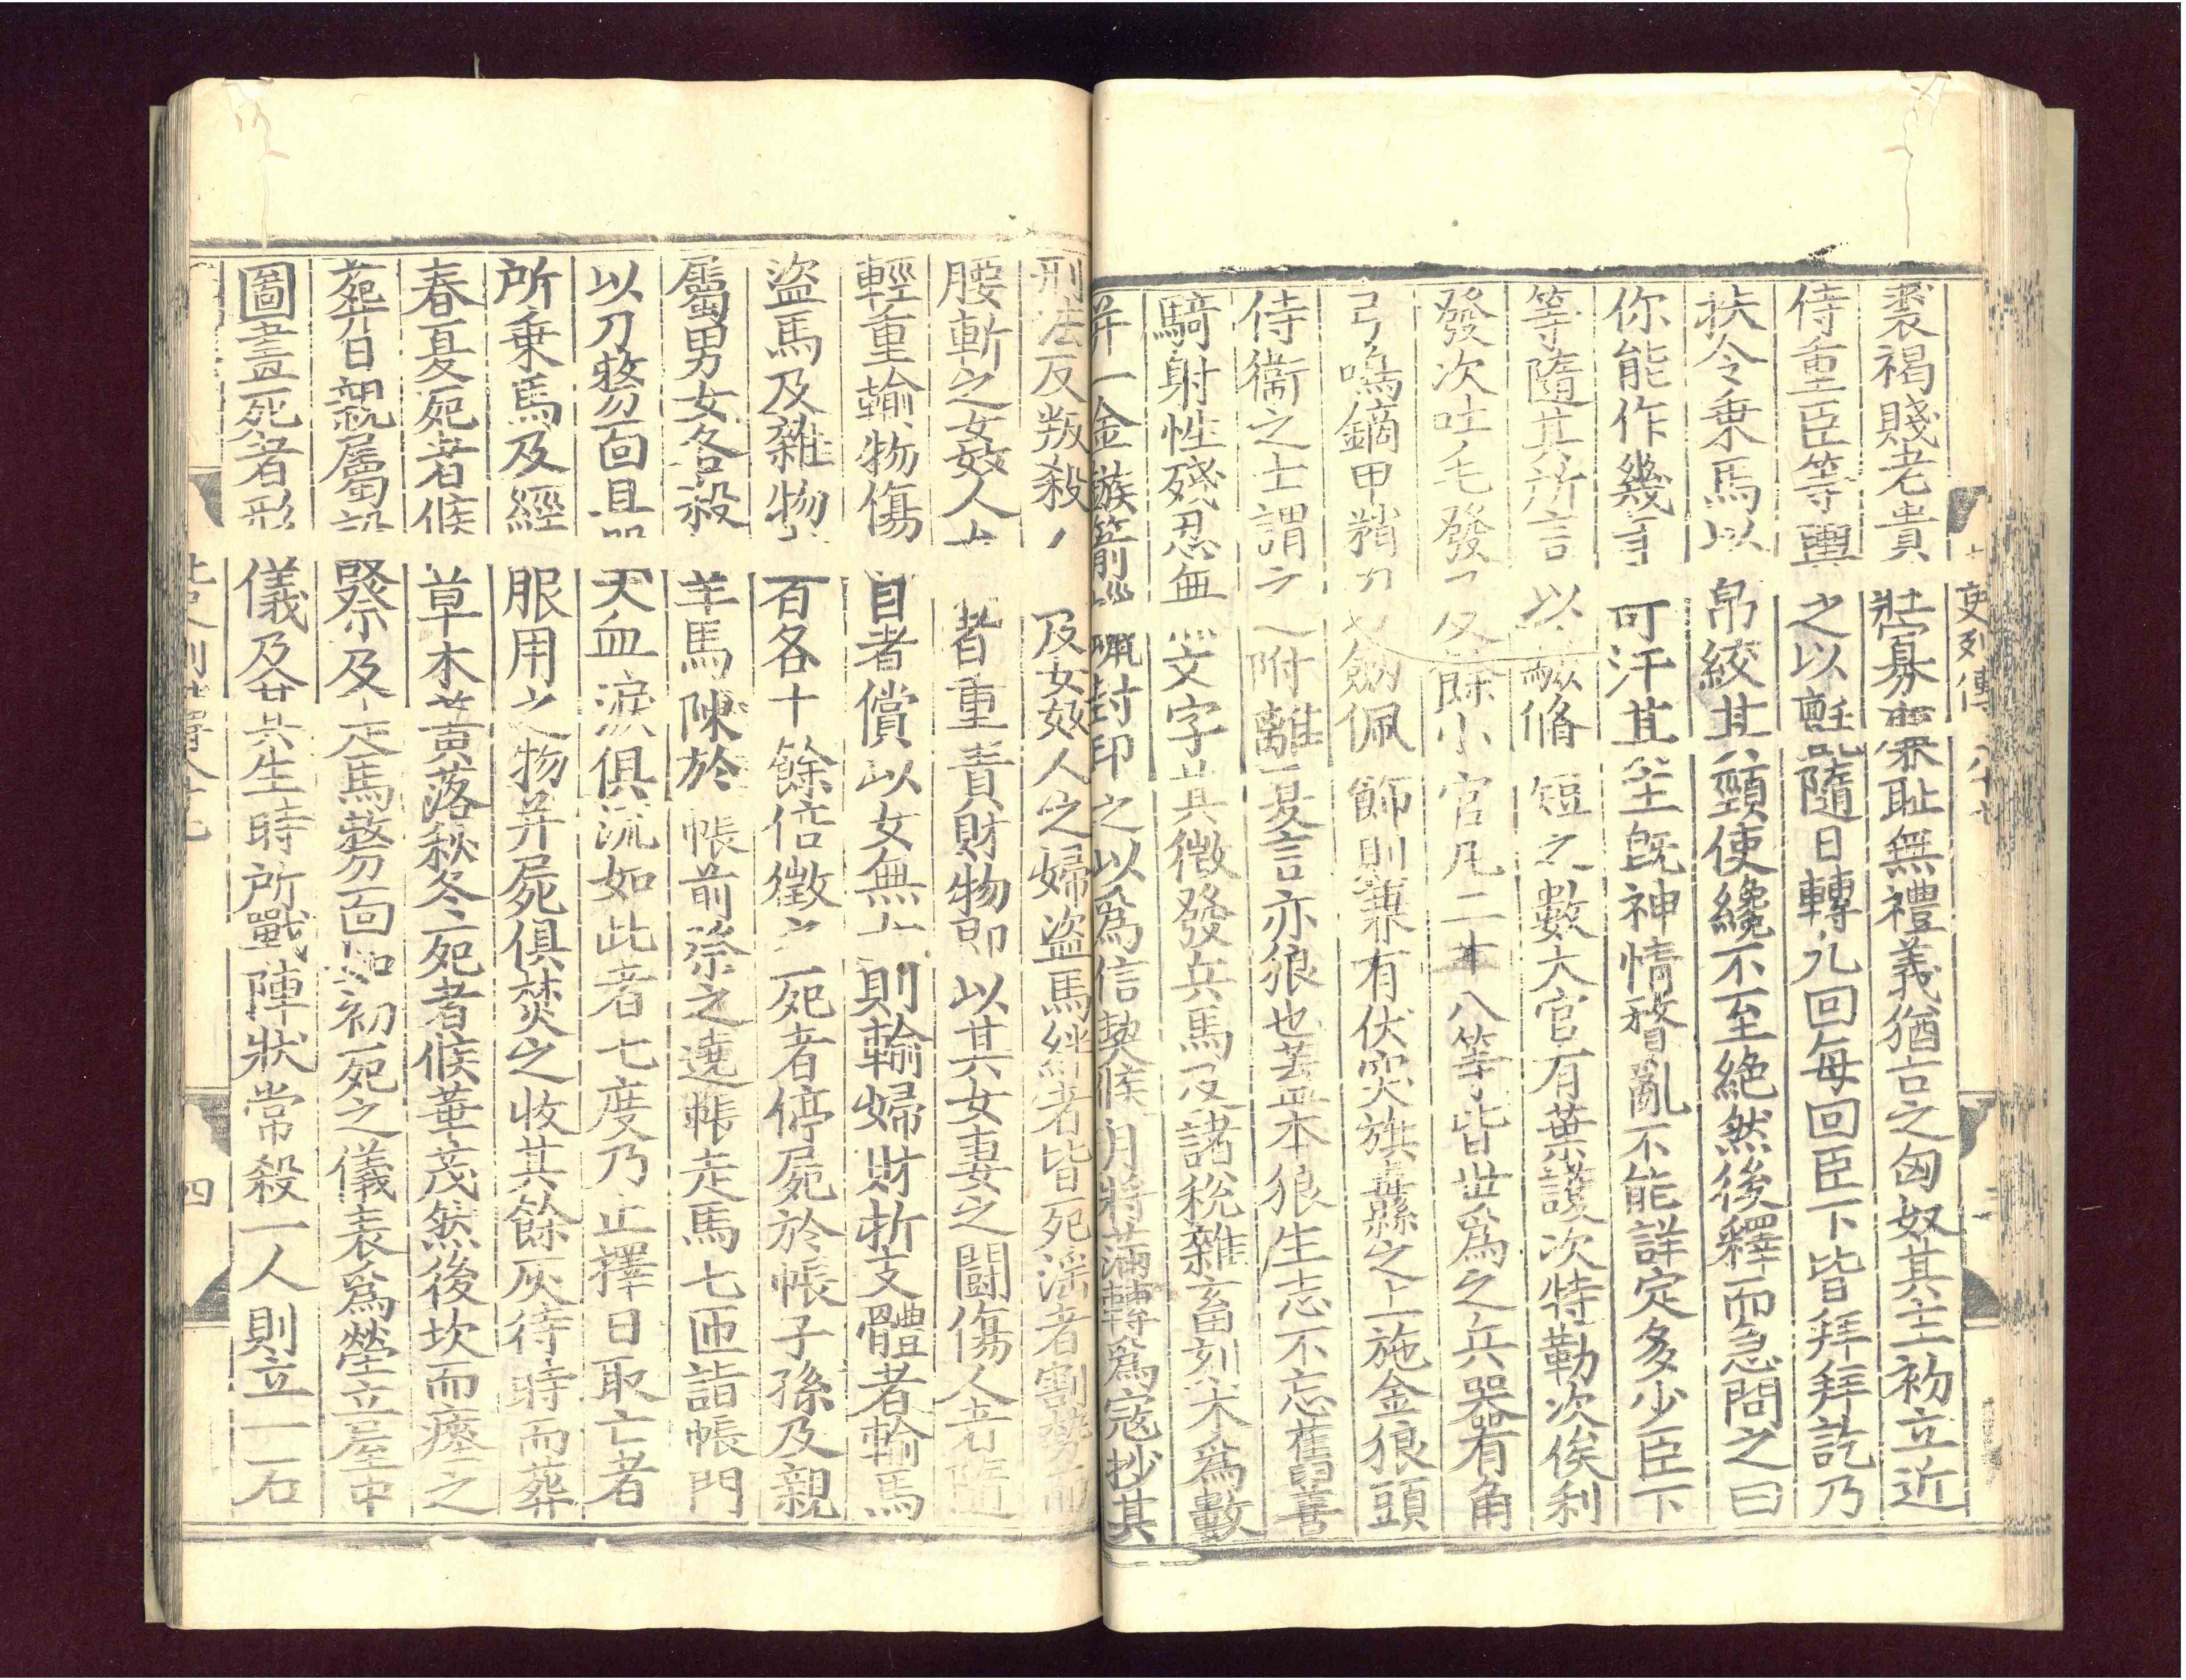 史列傳八十七
裘褐賤老貴壯寡廉恥無禮義猶古之匈奴其主初立近
侍重臣等輿之以氈隨日轉九回每回臣下皆拜拜訖乃
扶令乗馬以帛絞其頸使纔不至絶然後釋而急問之曰
你能作幾可汗其主旣神情瞀亂不能詳定多少臣下
等隨其所言以驗脩短之數大官有葉護次特勒次俟利
發次吐屯發餘小官凡二十八等皆世爲之兵器有角
弓鳴鏑甲矟刀劔佩飾則兼有伏突旗纛之上施金狼頭
侍衞之士謂之附離夏言亦狼也蓋本狼生志不忘舊善
騎射性殘忍無文字其徵發兵馬及諸稅雜畜刻木爲數
并一金鏃箭蠟封印之以爲信契候月將滿轉爲寇抄其
刑法反叛殺人及女姦人之婦盜馬絆者皆死淫者割勢而
腰斬之姦人女者重責財物即以其女妻之鬪傷人者隨
輕重輸物傷目者償以女無女則輸婦財折支體者輸馬
盜馬及雜物百各十餘倍徵之死者停屍於帳子孫及親
屬男女各殺羊馬陳於帳前祭之遶帳走馬七匝詣帳門
以刀剺面且哭血淚俱流如此者七度乃止擇日取亡者
所乗馬及經服用之物并屍俱焚之收其餘灰待時而葬
春夏死者候草木黃落秋冬死者候華茂然後坎而瘞之
葬日親屬設祭及走馬剺面如初死之儀表爲塋立屋中
圖畫死者形儀及其生時所戰陣狀常殺一人則立一石
四